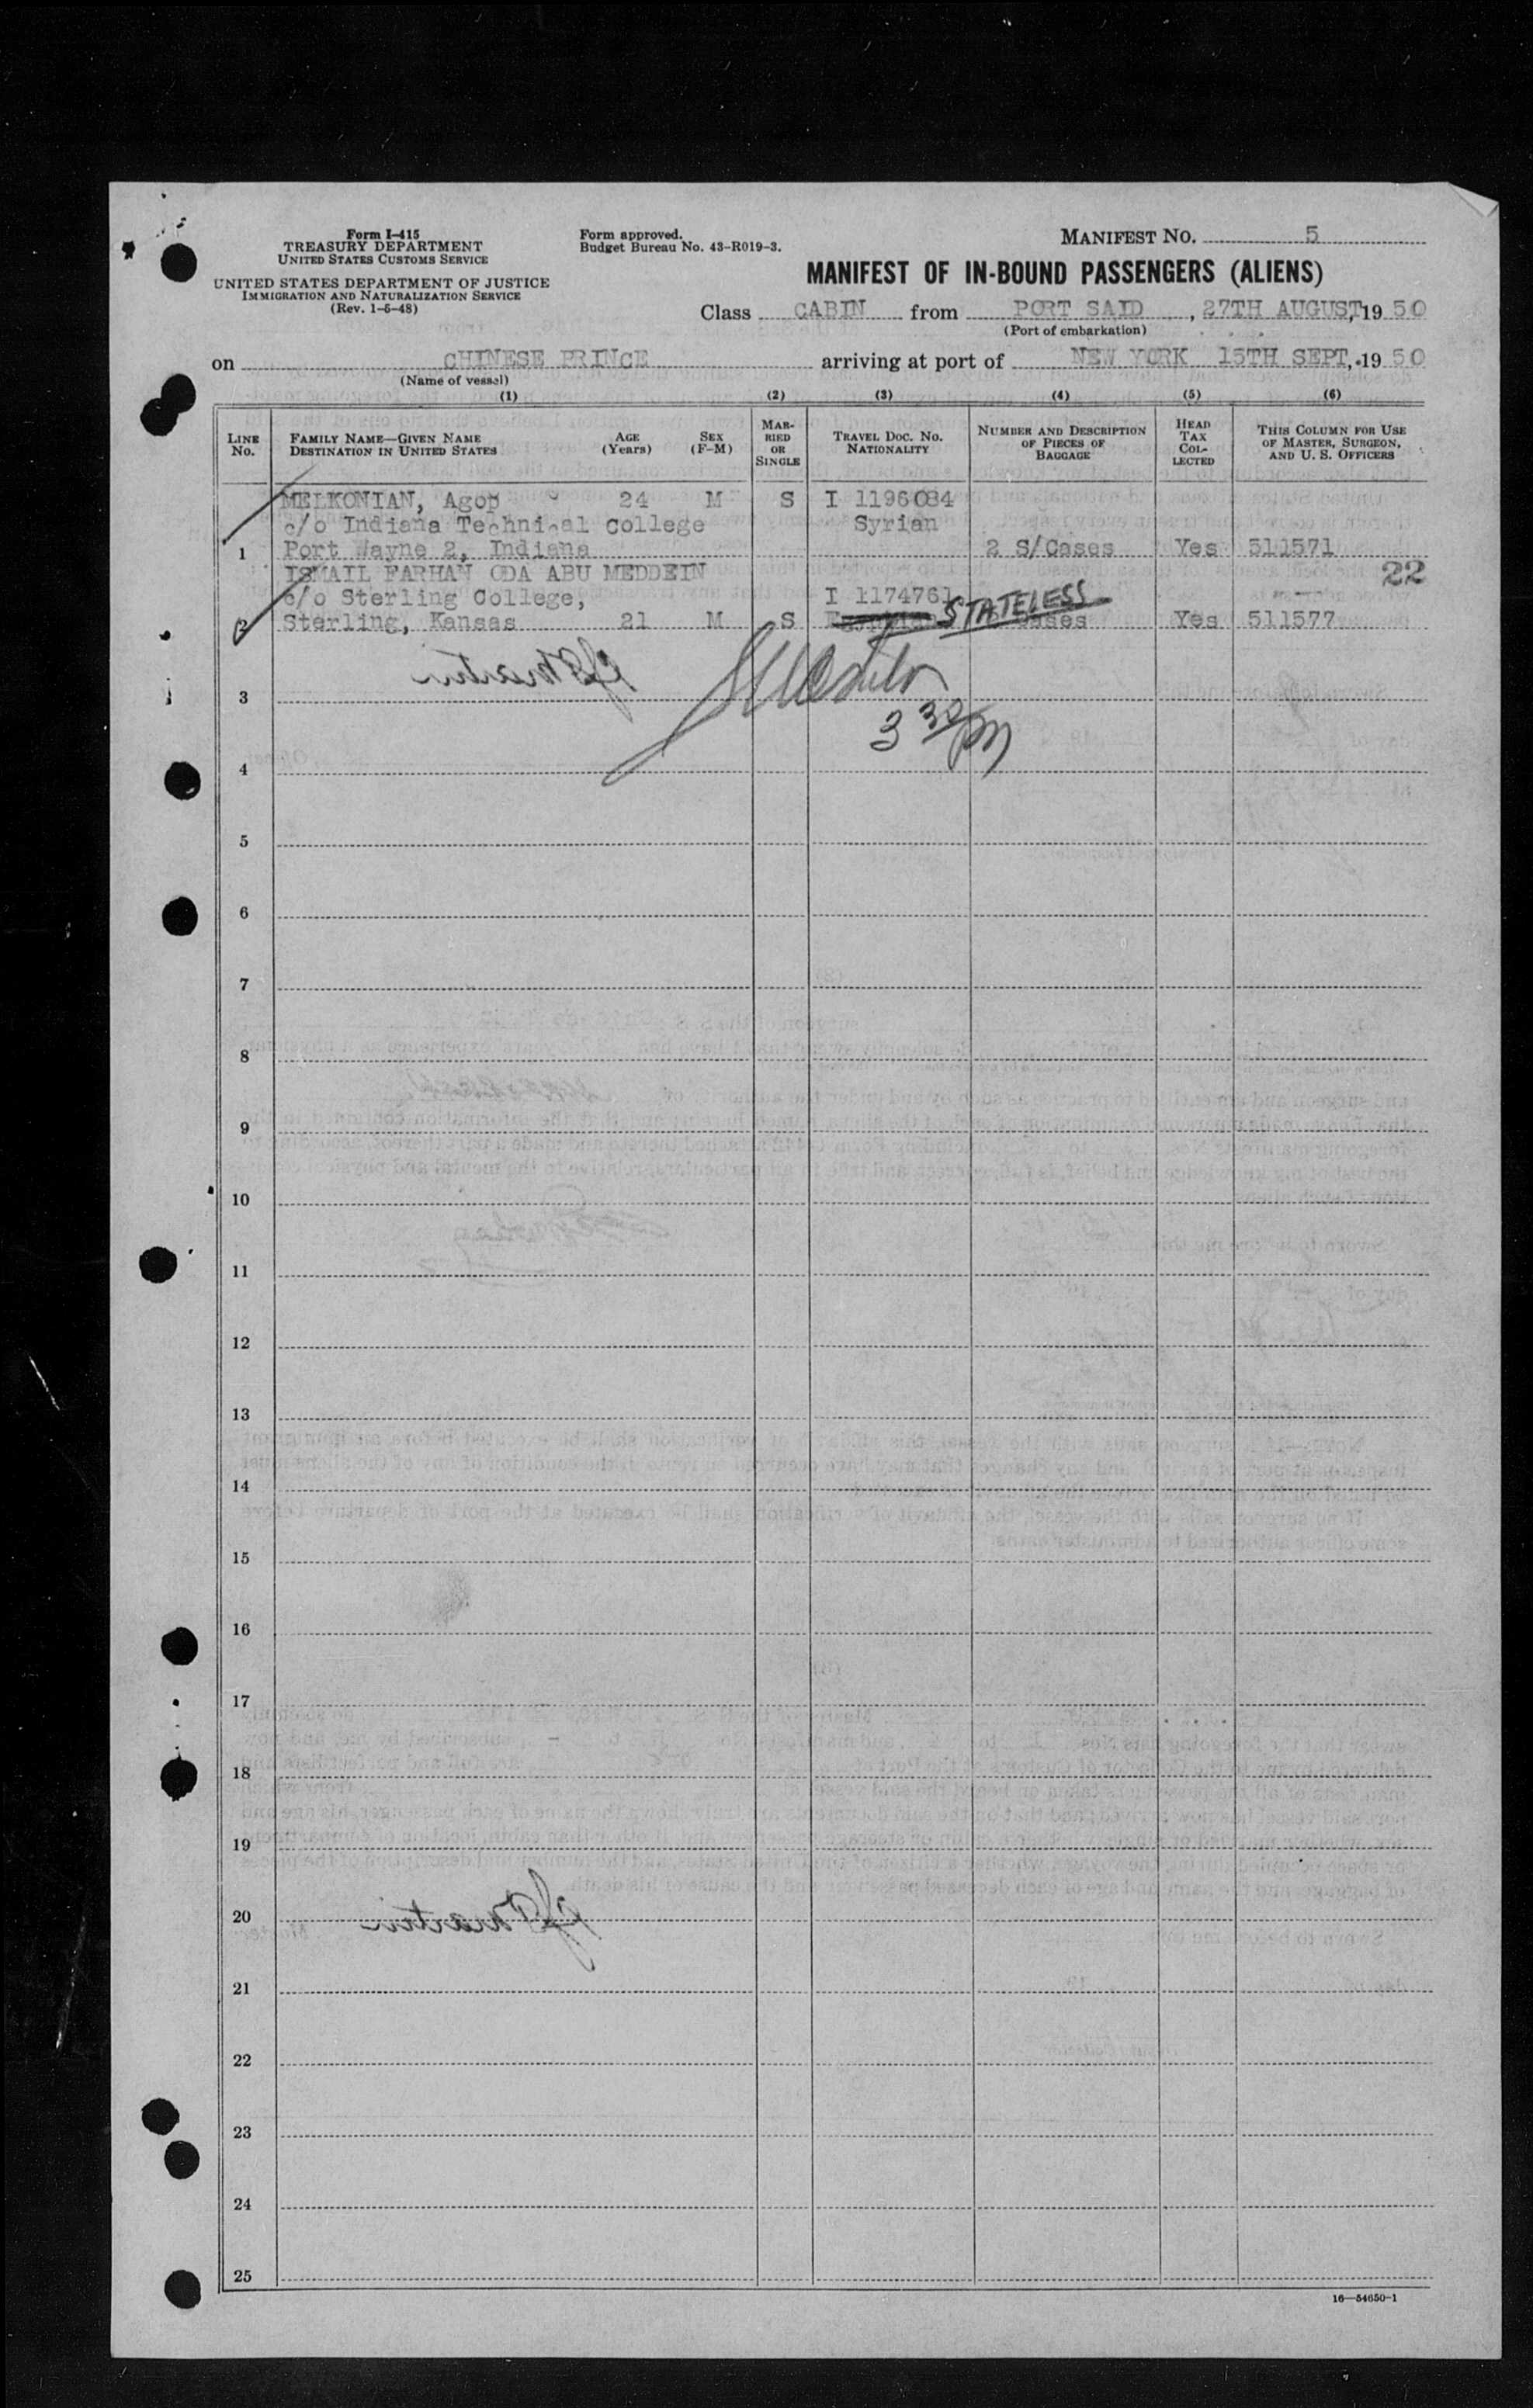 Form I-415
TREASURY DEPARTMENT
UNITED STATES CUSTOMS SERVICE
UNITED STATES DEPARTMENT OF JUSTICE
IMMIGRATION AND NATURALIZATION SERVICE
(Rev. 1-5-48)
Form approved.
Budget Bureau No. 43-R019-3.
MANIFEST NO. 5
MANIFEST OF IN-BOUND PASSENGERS (ALIENS)
Class CABIN from PORT SAID, 27TH AUGUST, 1950
(Port of embarkation)
on CHINESE PRINCE arriving at port of NEW YORK 15TH SEPT, 1950
(Name of vessel)
(1) (2) (3) (4) (5) (6)
LINE No. FAMILY NAME—GIVEN NAME DESTINATION IN UNITED STATES AGE (Years) SEX (F-M) MARRIED OR SINGLE TRAVEL DOC. NO. NATIONALITY NUMBER AND DESCRIPTION OF PIECES OF BAGGAGE HEAD TAX COLLECTED THIS COLUMN FOR USE OF MASTER, SURGEON, AND U. S. OFFICERS
MELKONIAN, Agop 24 M S I 1196084
c/o Indiana Technical College Syrian
1 Port Wayne 2, Indiana 2 S/Cases Yes 511571
ISMAIL FARHAN ODA ABU MEDDEIN 22
c/o Sterling College, I 1174761
2 Sterling, Kansas 21 M S STATELESS Cases Yes 511577
3
3 30 pm
4
5
6
7
8
9
10
11
12
13
14
15
16
17
18
19
20
21
22
23
24
25
16—54650-1